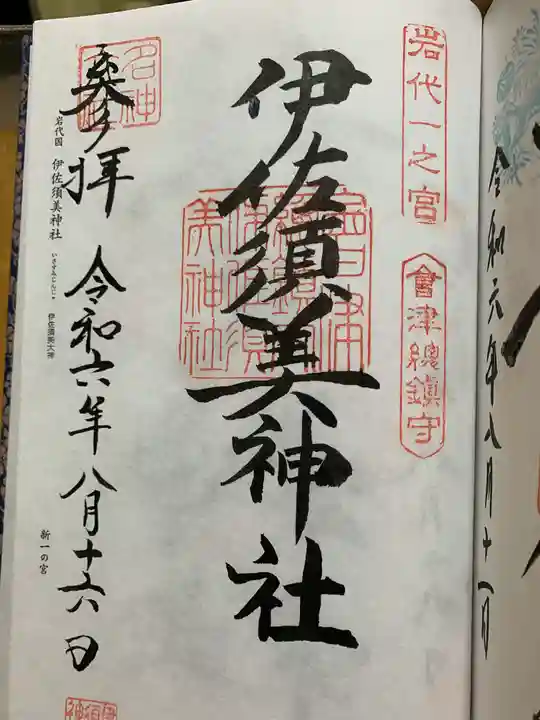 令和六年八月十一日
岩代一之宮
會津總鎮守
伊佐須美神社
會津總鎮守伊佐須美神社
名神
参拝 令和六年八月十六日
岩代国 伊佐須美神社 いさすみじんじゃ 伊佐須美大神
新一の宮